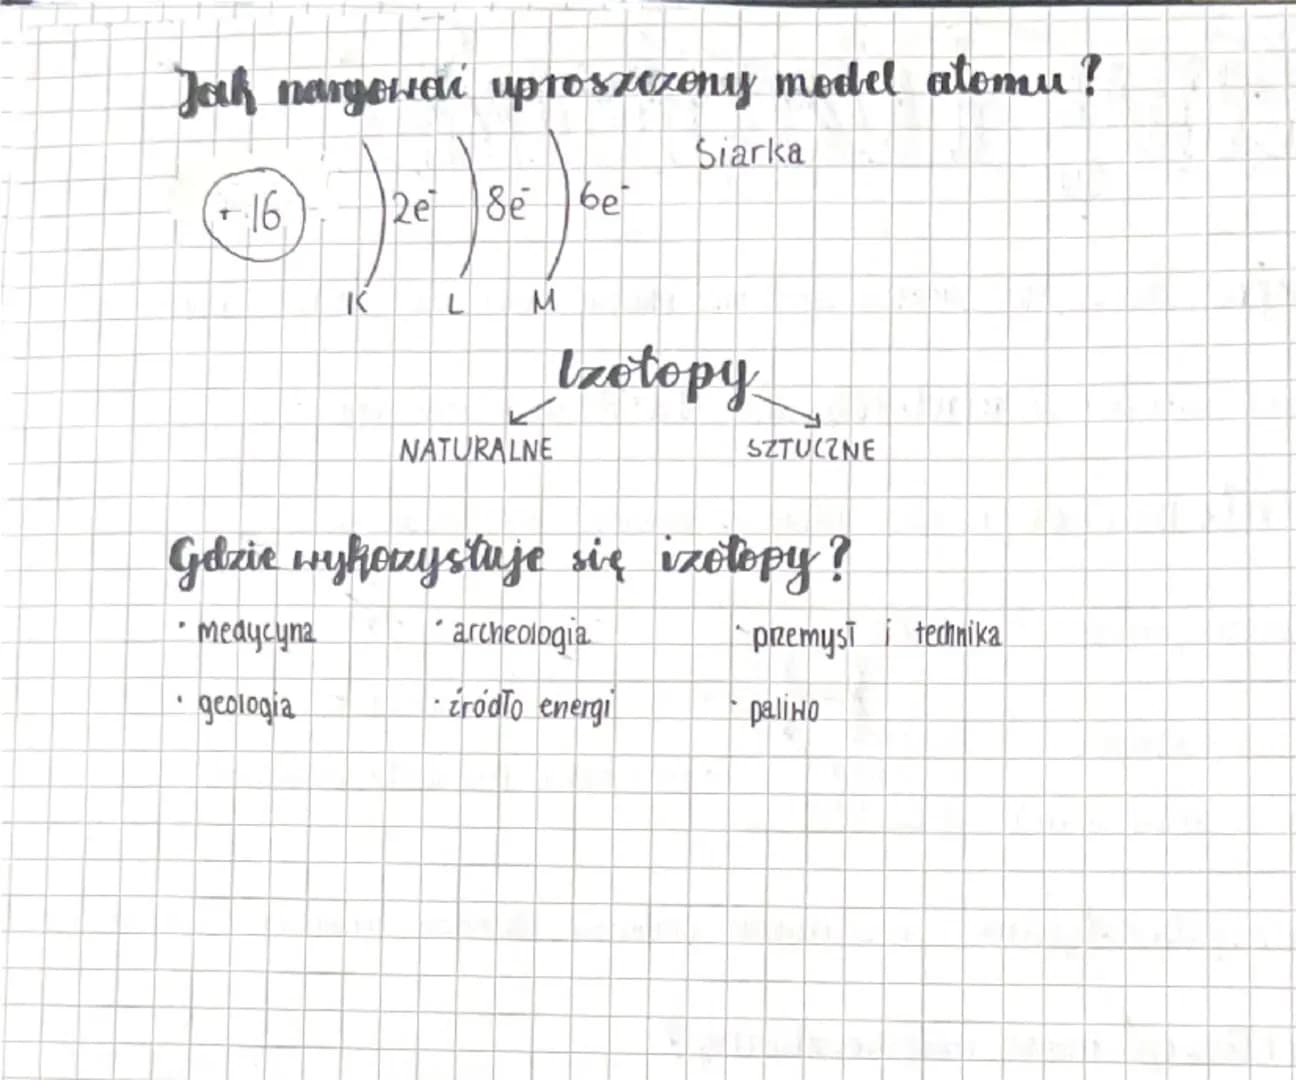 Jak narysować uproszczony model atomu?
Siarka
+16 2e⁻ 8e⁻ 6e⁻
K L M
Izotopy
NATURALNE SZTUCZNE
Gdzie wykorzystuje się izotopy?
· medycyna · archeologia · przemysł i technika
· geologia · źródło energi · paliwo